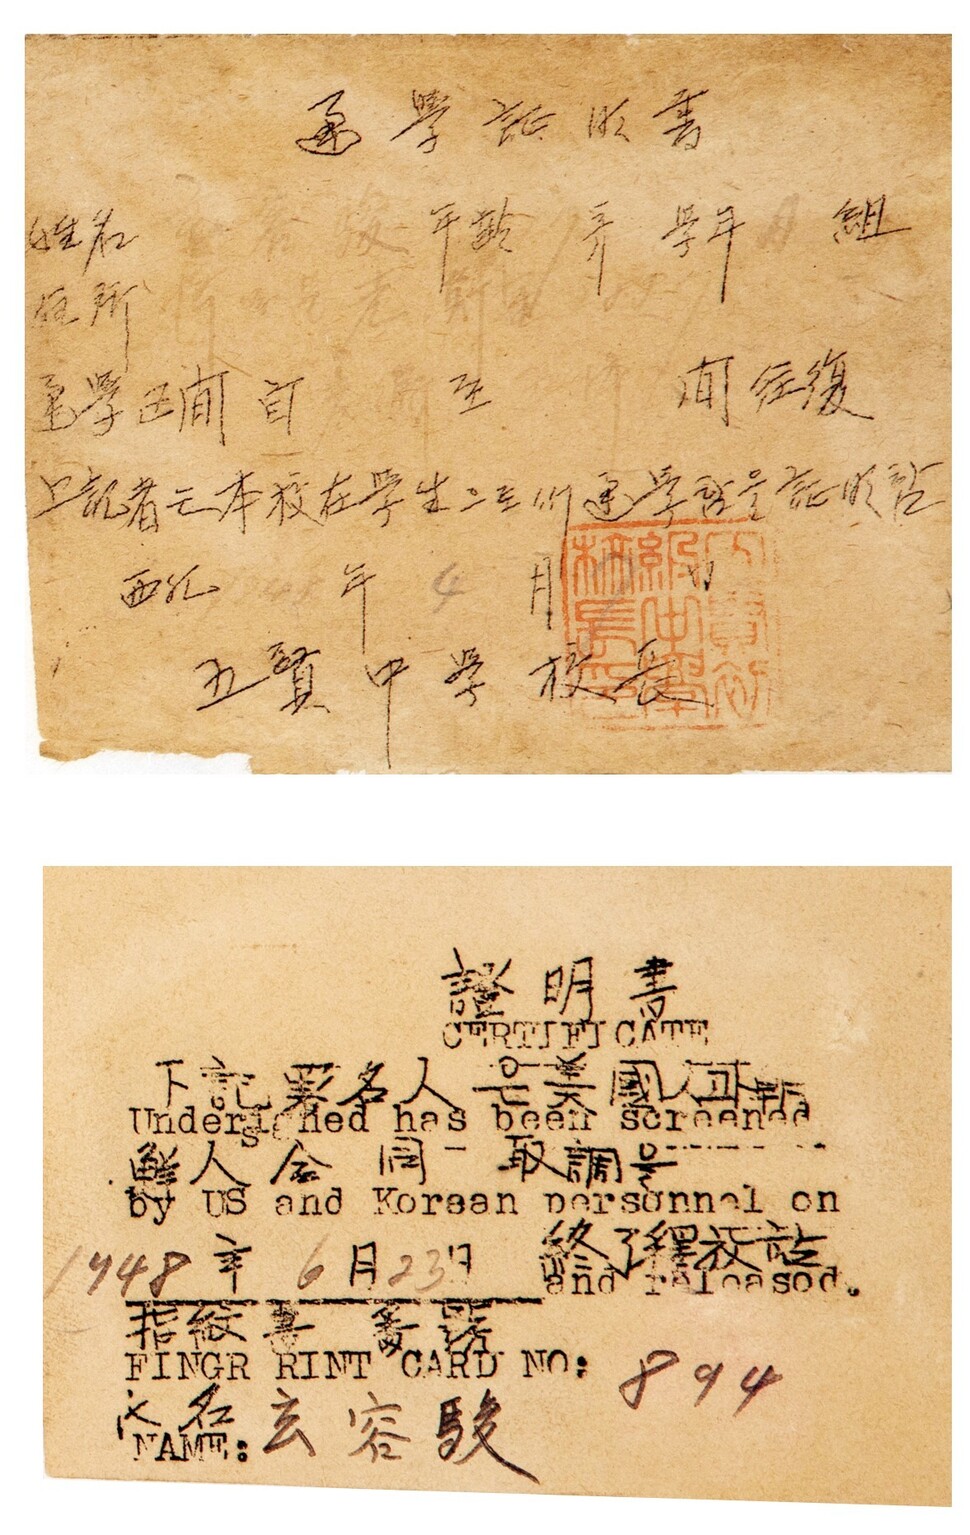 通學証明書
姓名 容駿 年齡 才 學年 組
住所
通學区間 自 至 間往復
上記者는本校在學生으로서通學함을証明함
西紀 年 4 月 日
五賢中學校長
證明書
CERTIFICATE
下記署名人은美國人과朝
Undersigned has been screened
鮮人合同 取調를
by US and Korean personnel on
1948年 6月23日 終了釋放함
and released.
指紋書番號
FINGR RINT CARD NO: 894
氏名
NAME: 玄容駿